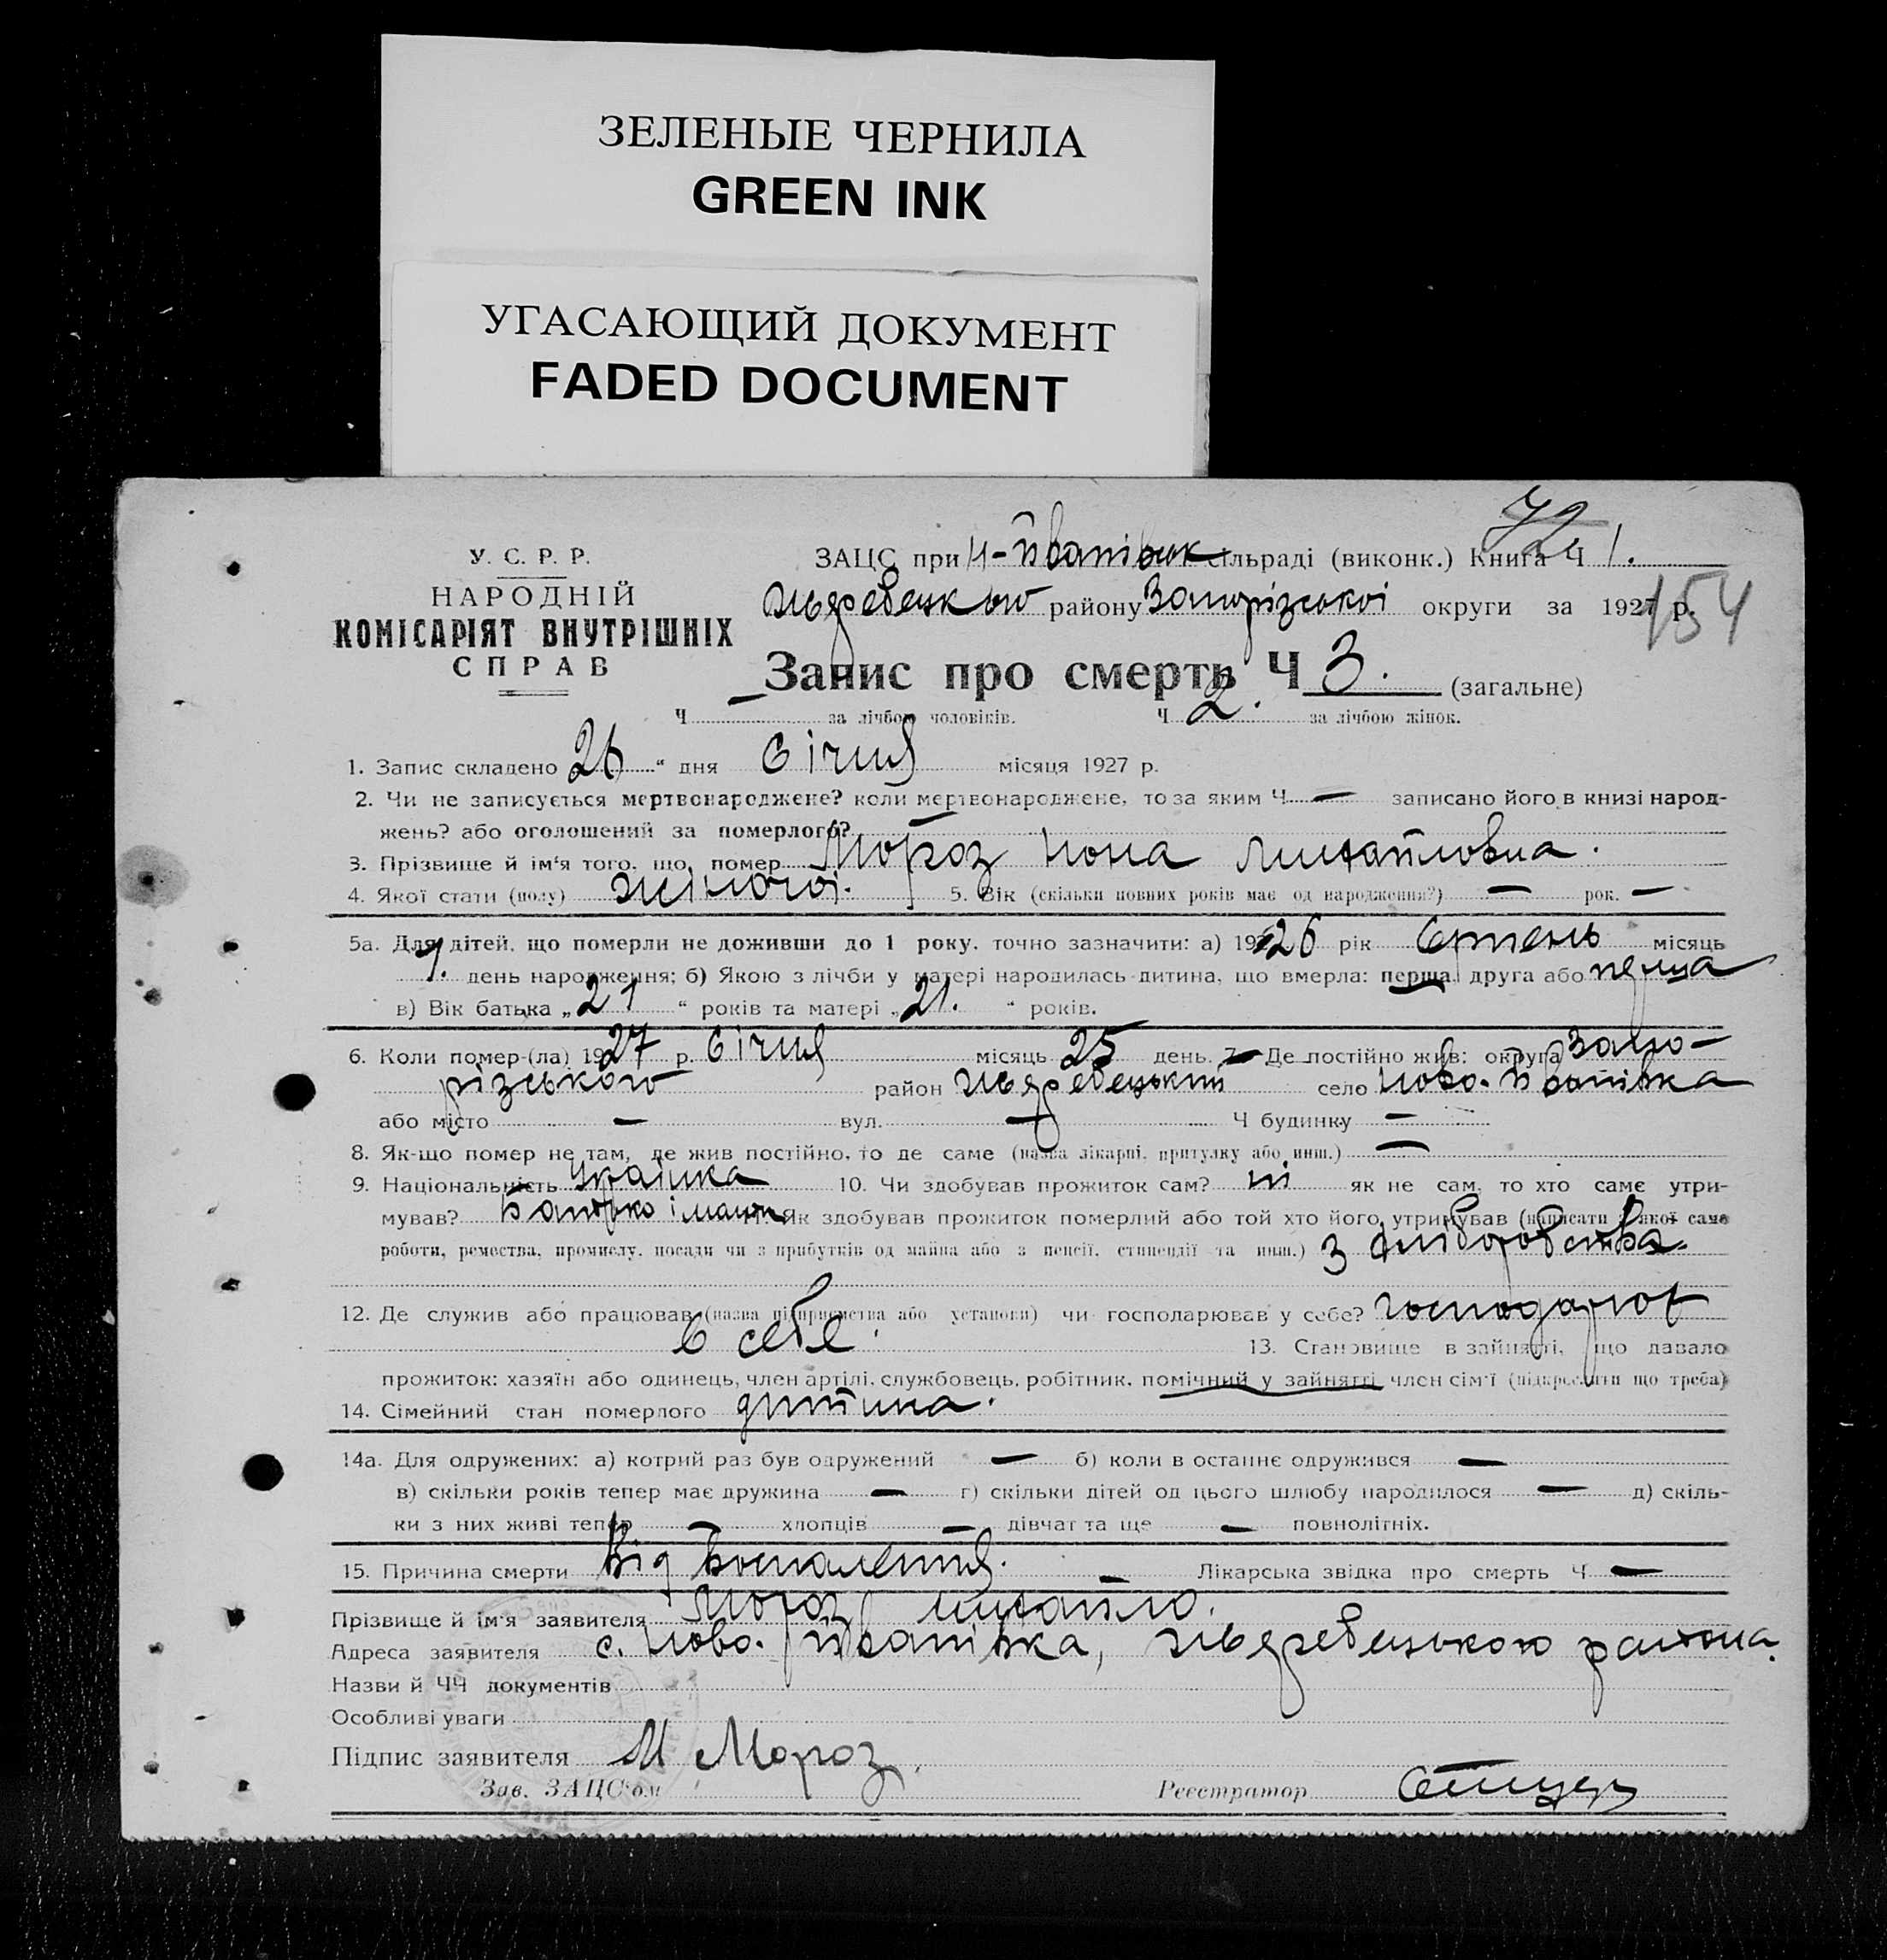 ЗЕЛЕНЫЕ ЧЕРНИЛА
GREEN INK
УГАСАЮЩИЙ ДОКУМЕНТ
FADED DOCUMENT
72
154
У. С. Р. Р.
НАРОДНІЙ
КОМІСАРІЯТ ВНУТРІШНІХ
СПРАВ
ЗАЦС при Н-Іванівськ сільраді (виконк.) Книга Ч 1.
Жеребецького району Запорізької округи за 1927 р.
Запис про смерть Ч 3. (загальне)
Ч — за лічбою чоловіків. Ч 2. за лічбою жінок.
1. Запис складено 26 “ дня Січня місяця 1927 р.
2. Чи не записується мертвонароджене? коли мертвонароджене, то за яким Ч — записано його в книзі народ-
жень? або оголошений за померлого? —
3. Прізвище й ім‘я того, що помер Мороз Нона Михайловна.
4. Якої стати (полу) жіночої. 5. Вік (скільки повних років має од народження?) — рок. —
5а. Для дітей, що померли не доживши до 1 року, точно зазначити: а) 1926 рік Серпень місяць
7. день народження; б) Якою з лічби у матері народилась дитина, що вмерла: перша, друга або перша
в) Вік батька „21 “ років та матері „21. “ років.
6. Коли помер-(ла) 1927 р. Січня місяць 25 день. 7. Де постійно жив: округа Запо-
різького район Жеребецький село Ново-Іванівка
або місто — вул. — Ч будинку —
8. Як-що помер не там, де жив постійно, то де саме (назва лікарні, притулку або инш.) —
9. Національність Украінка 10. Чи здобував прожиток сам? ні як не сам, то хто саме утри-
мував? Батько і мати Як здобував прожиток померлий або той хто його утримував (написати з якої саме
роботи, ремества, промислу, посади чи з прибутків од майна або з пенсії, стипендії та инш.) з хліборобства.
12. Де служив або працював (назва підприємства або установи) чи господарював у себе? господарюв
в себе. 13. Становище в зайнятті, що давало
прожиток: хазяїн або одинець, член артілі, службовець, робітник, помічний у зайнятті член сім‘ї (підкреслити що треба)
14. Сімейний стан померлого дитина.
14а. Для одружених: а) котрий раз був одружений — б) коли в останнє одружився —
в) скільки років тепер має дружина — г) скільки дітей од цього шлюбу народилося — д) скіль-
ки з них живі тепер — хлопців — дівчат та ще — повнолітніх.
15. Причина смерти Від воспаления. — Лікарська звідка про смерть Ч —
Прізвище й ім‘я заявителя Мороз Михайло.
Адреса заявителя с. Ново-Іванівка, Жеребецького района.
Назви й ЧЧ документів
Особливі уваги
Підпис заявителя М Мороз
Зав. ЗАЦС‘ом Реєстратор